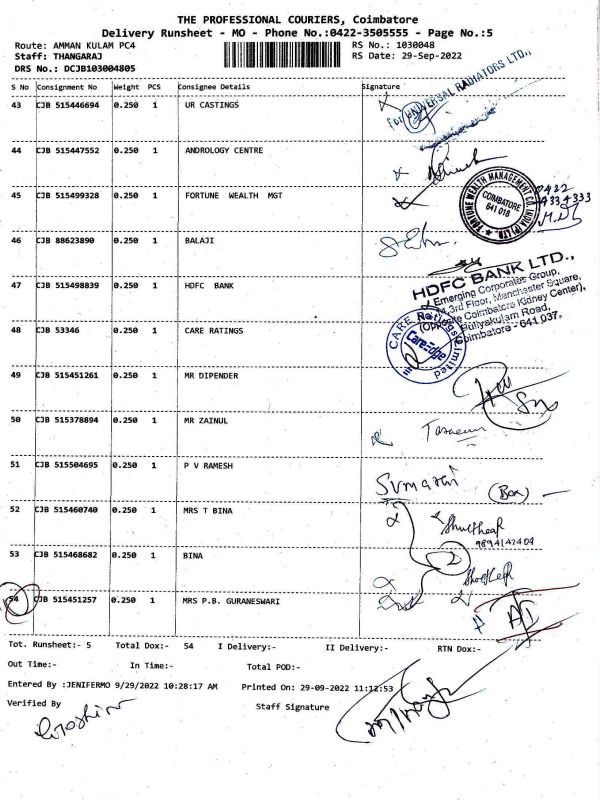 THE PROFESSIONAL COURIERS, Coimbatore
Delivery Runsheet - MO - Phone No.:0422-3505555 - Page No.:5
Route: AMMAN KULAM PC4 RS No.: 1030048
Staff: THANGARAJ RS Date: 29-Sep-2022
DRS No.: DCJB103004805
S No Consignment No Weight PCS Consignee Details Signature
43 CJB 515446694 0.250 1 UR CASTINGS
For UNIVERSAL RADIATORS LTD.,
44 CJB 515447552 0.250 1 ANDROLOGY CENTRE
45 CJB 515499328 0.250 1 FORTUNE WEALTH MGT
FORTUNE WEALTH MANAGEMENT CO INDIA (P) LTD.
COIMBATORE
641 018
0422
4334333
46 CJB 88623890 0.250 1 BALAJI
47 CJB 515498839 0.250 1 HDFC BANK
HDFC BANK LTD.,
Emerging Corporates Group,
3rd Floor, Manchester Square,
(Opposite Coimbatore Kidney Center),
Puliyakulam Road,
Coimbatore - 641 037.
48 CJB 53346 0.250 1 CARE RATINGS
CARE Ratings Limited
CareEdge
49 CJB 515451261 0.250 1 MR DIPENDER
50 CJB 515378894 0.250 1 MR ZAINUL
51 CJB 515504695 0.250 1 P V RAMESH
(Box)
52 CJB 515460740 0.250 1 MRS T BINA
9894142404
53 CJB 515468682 0.250 1 BINA
2
54 CJB 515451257 0.250 1 MRS P.B. GURANESWARI
Tot. Runsheet:- 5 Total Dox:- 54 I Delivery:- II Delivery:- RTN Dox:-
Out Time:- In Time:- Total POD:-
Entered By :JENIFERMO 9/29/2022 10:28:17 AM Printed On: 29-09-2022 11:12:53
Verified By Staff Signature